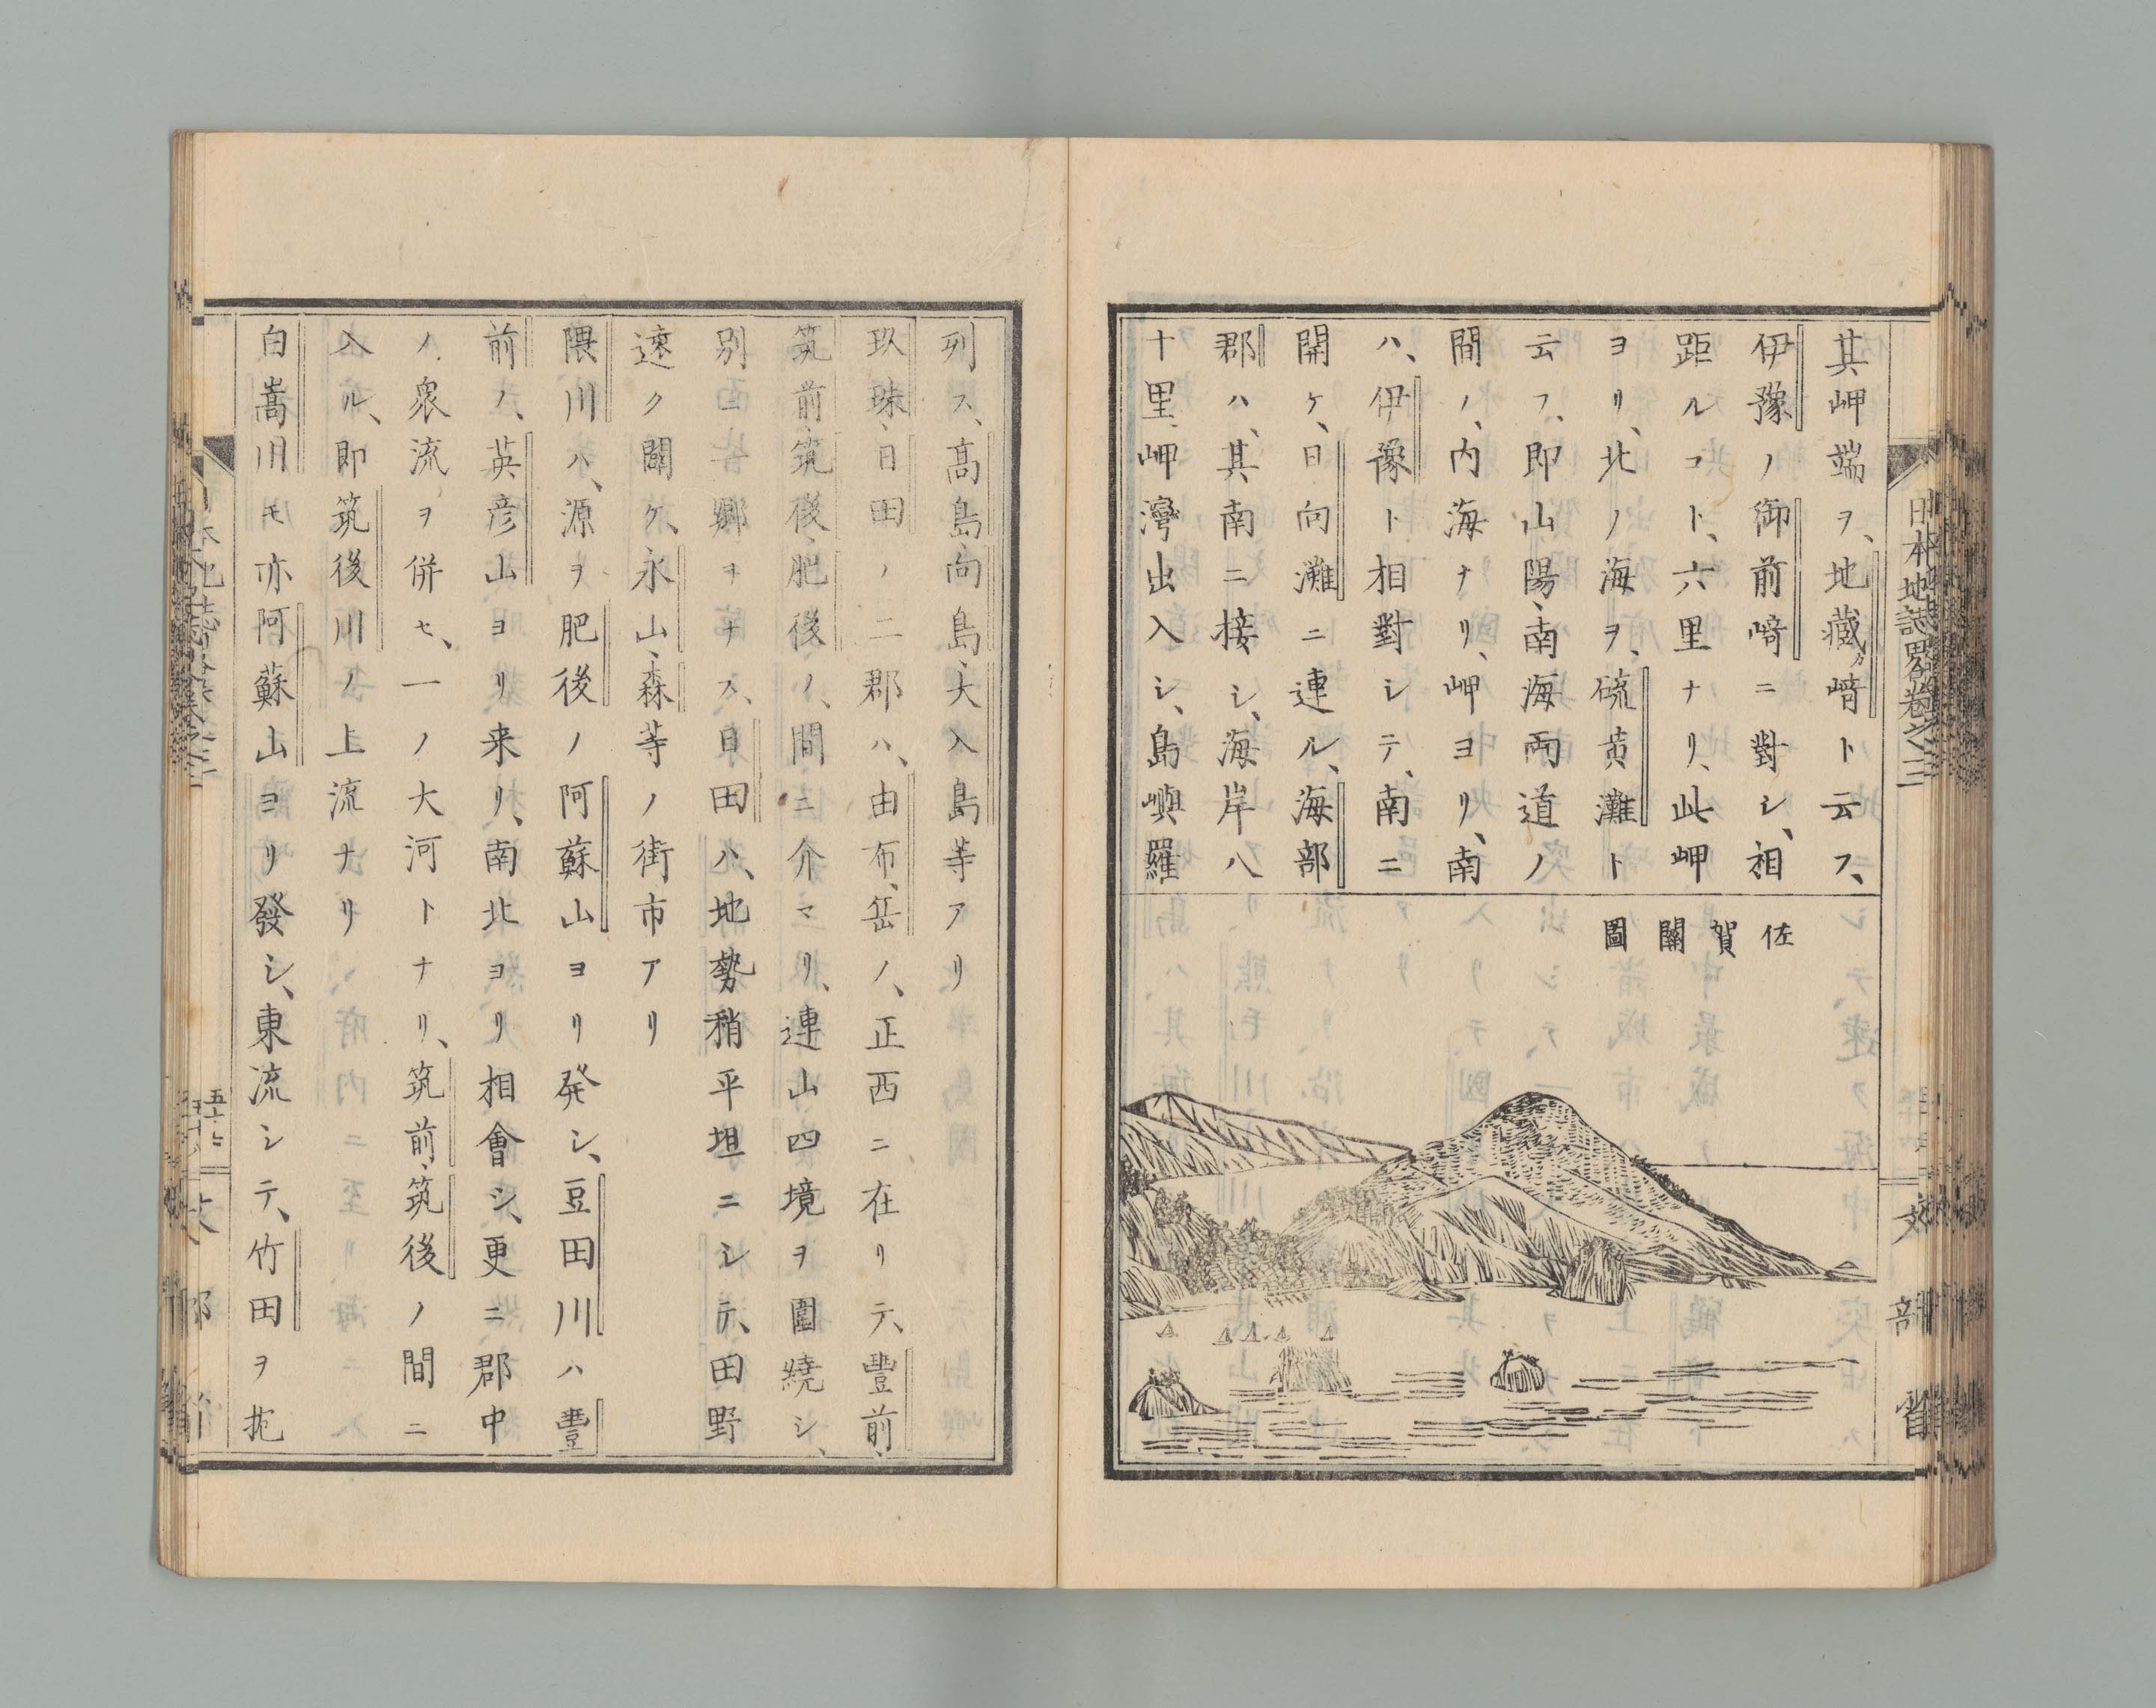 其岬端ヲ、地藏ガ﨑ト云フ、
伊豫ノ御前﨑ニ對シ、相
距ルコト、六里ナリ、此岬
ヨリ、北ノ海ヲ、硫黄灘ト
云フ、即山陽、南海兩道ノ
間ノ、内海ナリ、岬ヨリ、南
ハ、伊豫ト相對シテ、南ニ
開ケ、日向灘ニ連ル、海部
郡ハ、其南ニ接シ、海岸八
十里、岬灣出入シ、島嶼羅
佐賀關圖
日本地誌畧卷之三
文部省
列ス、髙島、向島、大入島等アリ
玖珠、日田ノ二郡ハ、由布岳ノ、正西ニ在リテ、豐前、
筑前、筑後、肥後ノ、間ニ介マリ、連山四境ヲ圍繞シ、
別ニ一鄕ヲナス、日田ハ、地勢稍平坦ニシテ、田野
遠ク闢ケ、永山、森等ノ街市アリ
隈川ハ、源ヲ肥後ノ阿蘇山ヨリ発シ、豆田川ハ豐
前ノ、英彦山ヨリ来リ、南北ヨリ相會シ、更ニ郡中
ノ衆流ヲ併セ、一ノ大河トナリ、筑前、筑後ノ間ニ
入ル、即筑後川ノ上流ナリ
白嵩川モ亦阿蘇山ヨリ發シ、東流シテ、竹田ヲ抱